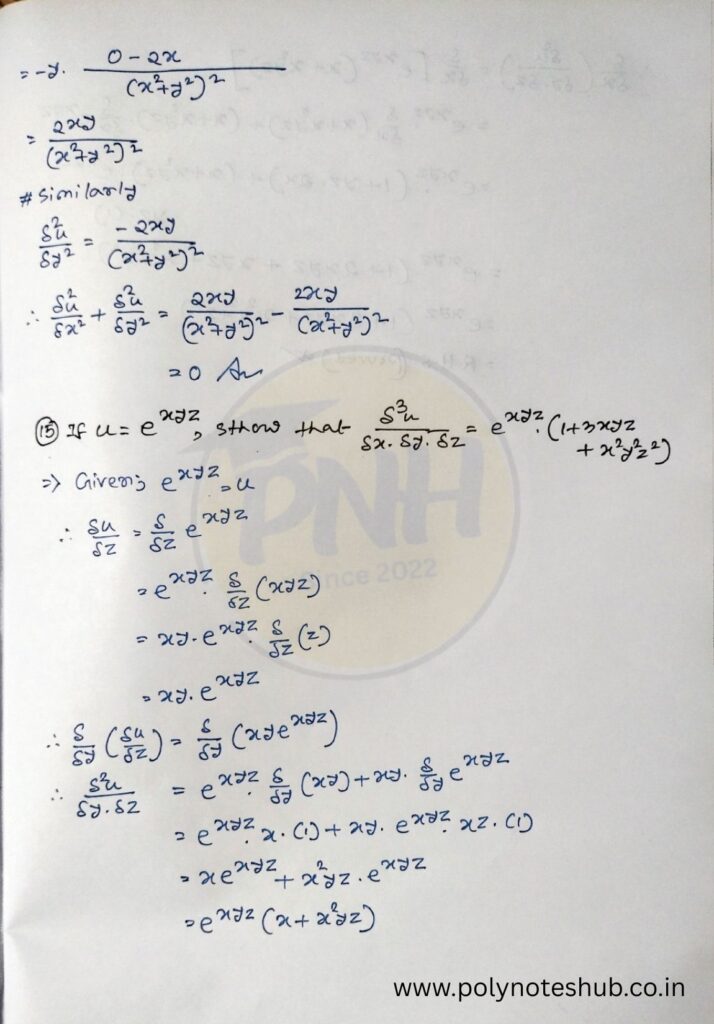 = -y. (0 - 2x)/(x²+y²)²
= 2xy/(x²+y²)²
# Similarly
δ²u/δy² = -2xy/(x²+y²)²
∴ δ²u/δx² + δ²u/δy² = 2xy/(x²+y²)² - 2xy/(x²+y²)²
= 0 Ans
(15) If u = e^xyz, sthow that δ³u/(δx. δy. δz) = e^xyz. (1+3xyz
+ x²y²z²)
=> Given; e^xyz = u
∴ δu/δz = δ/δz e^xyz
= e^xyz. δ/δz (xyz)
= xy. e^xyz. δ/δz (z)
= xy. e^xyz
∴ δ/δy (δu/δz) = δ/δy (xye^xyz)
∴ δ²u/(δy. δz) = e^xyz. δ/δy (xy) + xy. δ/δy e^xyz
= e^xyz. x. (1) + xy. e^xyz. xz. (1)
= xe^xyz + x²yz. e^xyz
= e^xyz (x + x²yz)
PNH
Since 2022
www.polynoteshub.co.in